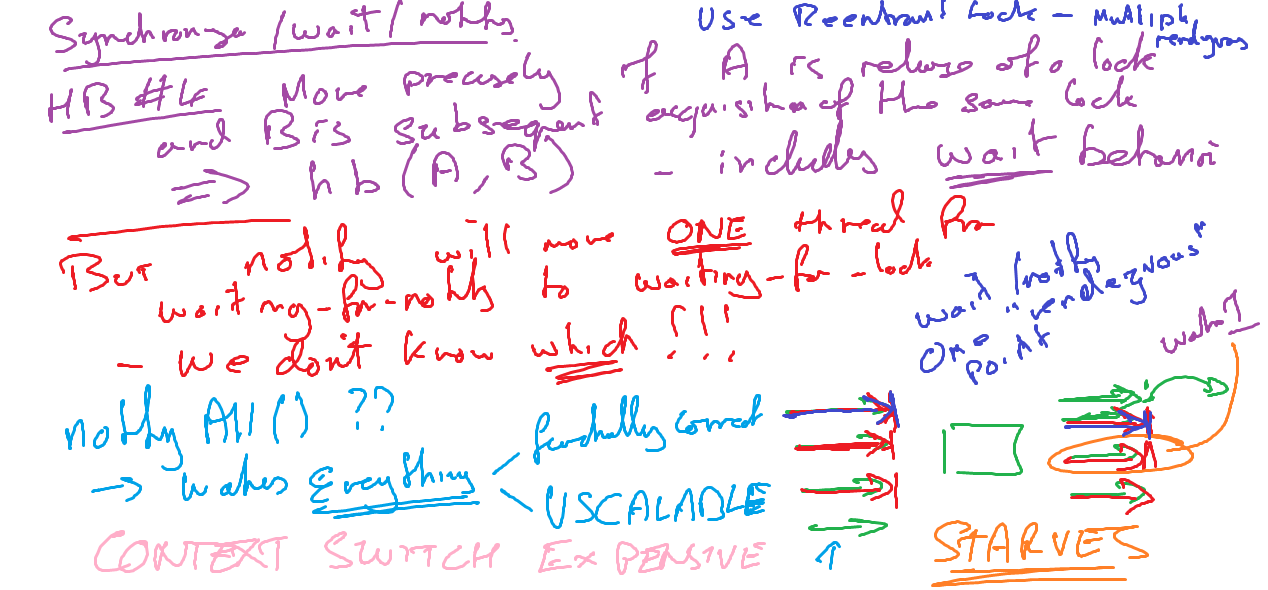 Synchronize / wait / notify
Use Reentrant Lock - Multiple rendezvous
HB #4 More precisely if A is release of a lock
and B is subsequent acquisition of the same lock
=> hb (A, B) - includes wait behavior
But notify will move ONE thread from
waiting-for-notify to waiting-for-lock
- We don't know which !!!
wait/notify
One "rendezvous"
point
notify All() ??
→ wakes Everything
functionally correct
USCALABLE
CONTEXT SWITCH EXPENSIVE
↑
STARVES